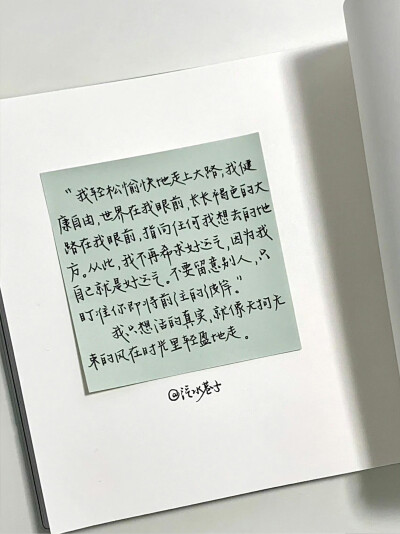 “我轻松愉快地走上大路,我健
康自由,世界在我眼前,长长褐色的大
路在我眼前,指向任何我想去的地
方。从此,我不再希求好运气,因为我
自己就是好运气。不要留意别人,只
盯准你即将前往的彼岸。”
我只想活的真实,就像无拘无
束的风在时光里轻盈地走。
@汽水巷子